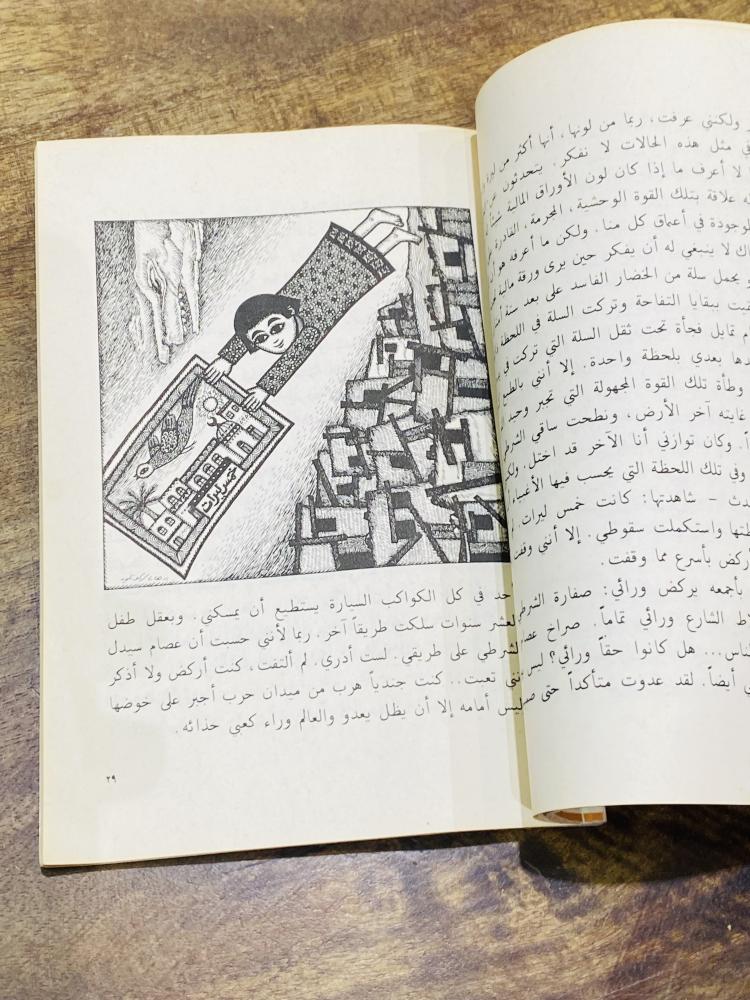 ولكنني عرفت، ربما من لونها، أنها أكثر من ليرة
في مثل هذه الحالات لا نفكر. يتحدثون عن
لا أعرف ما إذا كان لون الأوراق المالية
علاقة بتلك القوة الوحشية، المجرمة، القادرة
الموجودة في أعماق كل منا. ولكن ما أعرفه هو
لا ينبغي له أن يفكر حين يرى ورقة مالية
يحمل سلة من الخضار الفاسد على بعد ستة
ببقايا التفاحة وتركت السلة في اللحظة
تمايل فجأة تحت ثقل السلة التي تركت في
بعدي بلحظة واحدة. إلا أنني بالطبع
وطأة تلك القوة المجهولة التي تجبر وحيد
غايته آخر الأرض، ونطحت ساقي الشرطي
وكان توازني أنا الآخر قد اختل. ولكن
وفي تلك اللحظة التي يحسب فيها الأغبياء
- شاهدتها: كانت خمس ليرات.
واستكملت سقوطي. إلا أنني وقفت
أركض بأسرع مما وقفت.
بأجمعه يركض ورائي: صفارة الشرطي
الشارع ورائي تماماً. صراخ عصام
الناس... هل كانوا حقاً ورائي؟ ليس
أيضاً. لقد عدوت متأكداً حتى
خمس ليرات
أحد في كل الكواكب السيارة يستطيع أن يمسكني. وبعقل طفل
لعشر سنوات سلكت طريقاً آخر. ربما لأنني حسبت أن عصام سيدل
الشرطي على طريقي. لست أدري. لم ألتفت، كنت أركض ولا أذكر
أنني تعبت.. كنت جندياً هرب من ميدان حرب أجبر على خوضها
وليس أمامه إلا أن يظل يعدو والعالم وراء كعبي حذائه.
٢٩